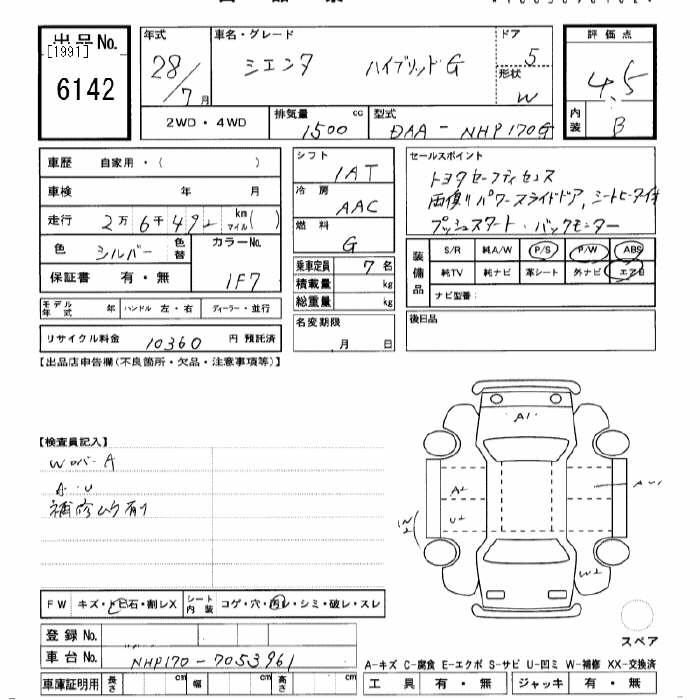 出品No.
[1991]
6142
年式 28/7月
車名・グレード シエンタ ハイブリッドG
ドア 5
形状 W
評価点 4.5
内装 B
2WD・4WD
排気量 1500 cc
型式 DAA-NHP170G
車歴 自家用・( )
車検 年 月
走行 2万6千492 km マイル( )
色 シルバー 色替
カラーNo. 1F7
保証書 有・無
モデル年式 年 ハンドル 左・右 ディーラー・並行
リサイクル料金 10360 円 預託済
シフト IAT
冷房 AAC
燃料 G
乗車定員 7 名
積載量 kg
総重量 kg
名変期限 月 日
セールスポイント
トヨタセーフティセンス
両側パワースライドドア、シートヒータ付
プッシュスタート・バックモニター
装備品 S/R 純A/W P/S P/W ABS
純TV 純ナビ 革シート 外ナビ エアB
ナビ型番:
後日品
【出品店申告欄(不良箇所・欠品・注意事項等)】
【検査員記入】
WロバーA
A・U
補修ムラ有り
A1
A2
U2
W2
W2
FW キズ・トビ石・割レX シート内装 コゲ・穴・汚レ・シミ・破レ・スレ
登録No.
車台No. NHP170-7053961
車庫証明用 長さ cm 幅 cm 高さ cm
スペア
A-キズ C-腐食 E-エクボ S-サビ U-凹ミ W-補修 XX-交換済
工具 有・無 ジャッキ 有・無